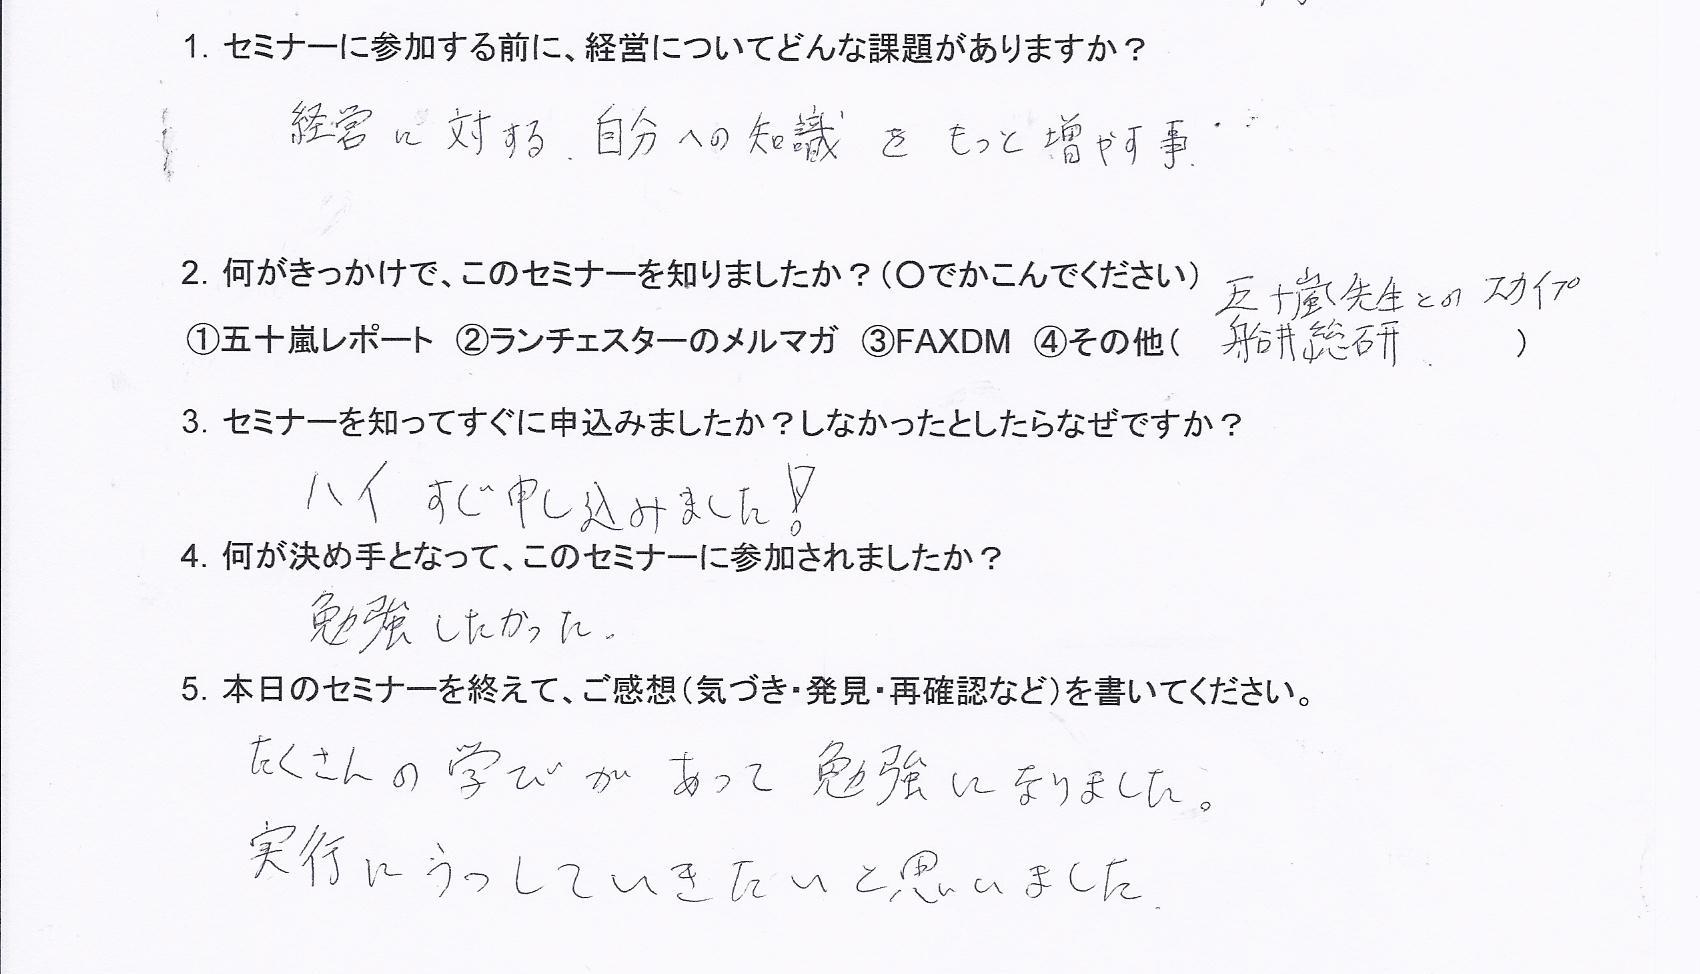 1. セミナーに参加する前に、経営についてどんな課題がありますか？
経営に対する、自分への知識をもっと増やす事．
2. 何がきっかけで、このセミナーを知りましたか？（〇でかこんでください）
五十嵐先生とのスカイプ
①五十嵐レポート ②ランチェスターのメルマガ ③FAXDM ④その他（ 船井総研． ）
3. セミナーを知ってすぐに申込みましたか？しなかったとしたらなぜですか？
ハイ すぐ申し込みました！
4. 何が決め手となって、このセミナーに参加されましたか？
勉強したかった．
5. 本日のセミナーを終えて、ご感想（気づき・発見・再確認など）を書いてください。
たくさんの学びがあって勉強になりました。
実行にうつしていきたいと思いました．